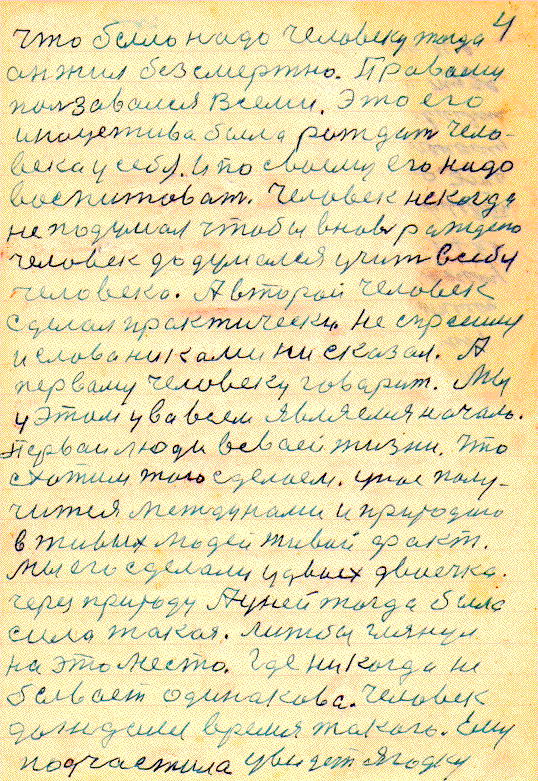 4
что было надо человеку тогда
он жил безсмертно. Правому
ползавался всеми. Это его
рождат чело-
века у себя. и по своему его надо
воспитоват. Человек некогда
не подумал чтобы вновь рождено
человек додумался учит в себя
человека. А второй человек
сделал практически. не спросили
и слова никами ни сказал. А
первому человеку говорит. Мы
у этом ува всем являемся начало.
Первои люди в своей жизни. что
схотим того сделаем. у нас полу-
чится междунами и природою
в живых людей живой факт.
Мы его сделали у двоих двоечка.
через природу А у ней тогда была
сила такая. лижбы глянул
на это место. Где никогда не
бывает одинакова. Человек
дождался время такого. Ему
подчастила увидет ягодку